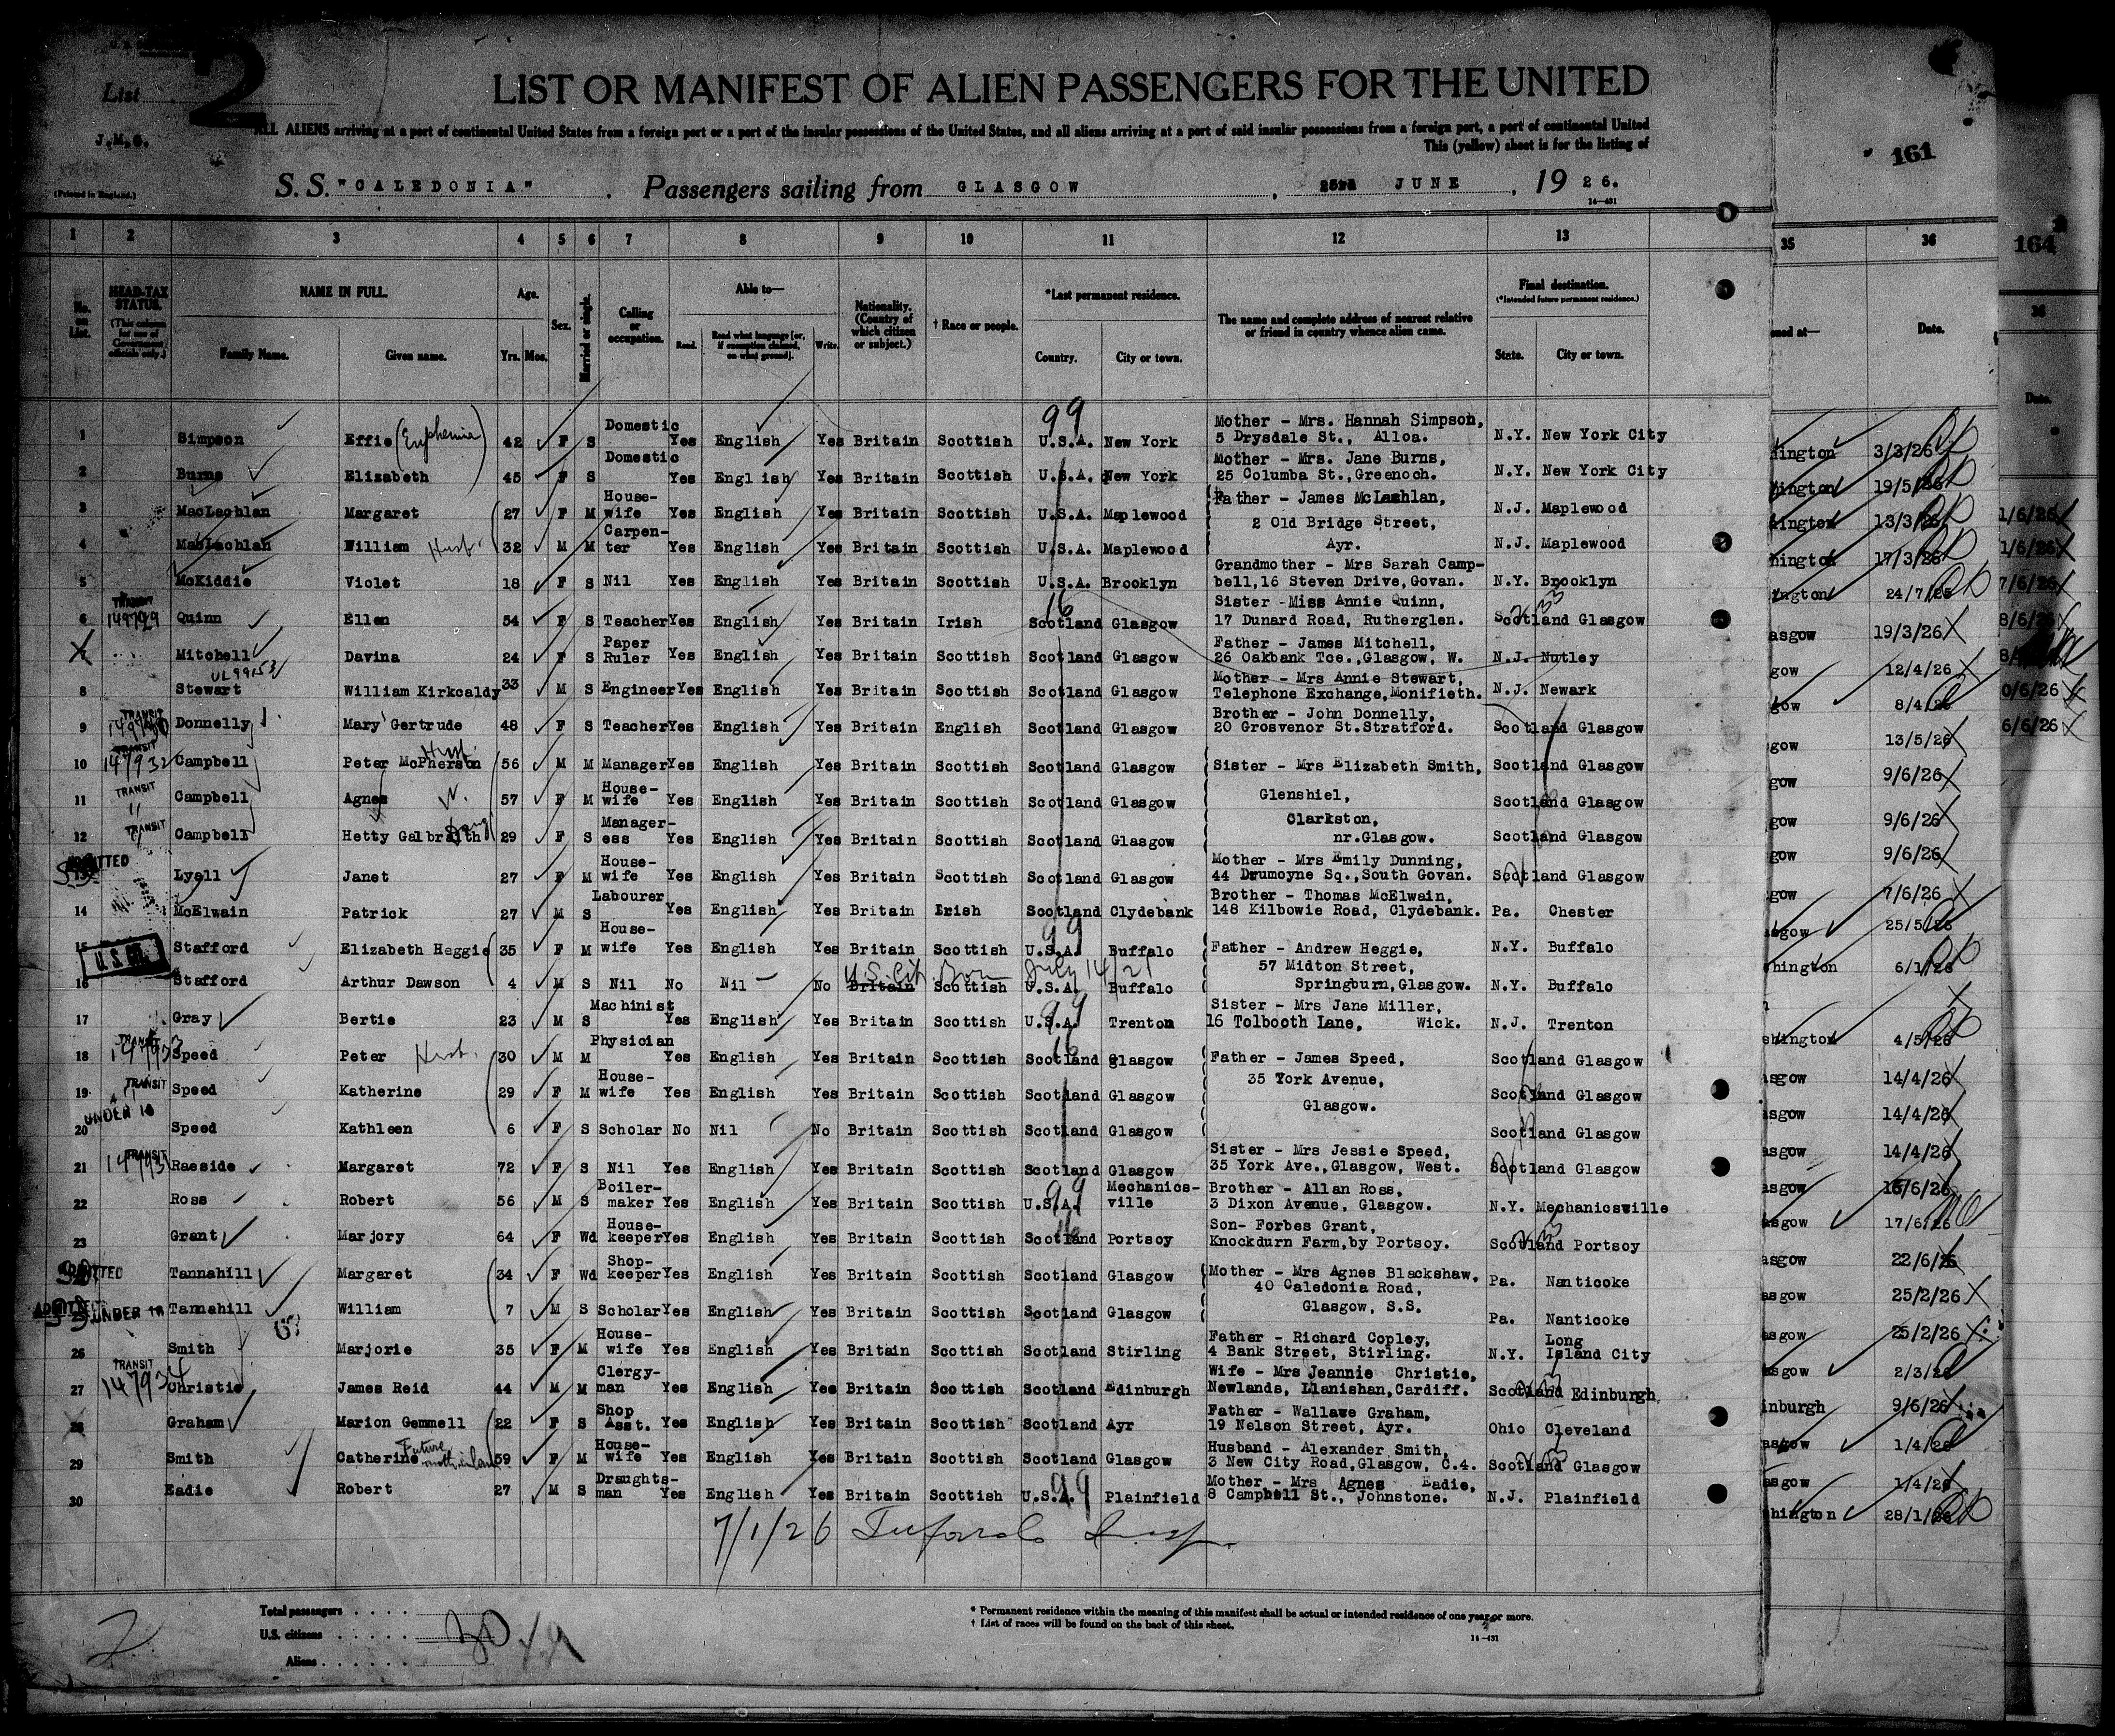 List 2
LIST OR MANIFEST OF ALIEN PASSENGERS FOR THE UNITED
ALL ALIENS arriving at a port of continental United States from a foreign port or a port of the insular possessions of the United States, and all aliens arriving at a port of said insular possessions from a foreign port, a port of continental United
J.M.G.
This (yellow) sheet is for the listing of
161
(Printed in England.)
S. S. "CALEDONIA". Passengers sailing from GLASGOW, JUNE, 1926.
14—431
1 2 3 4 5 6 7 8 9 10 11 12 13 35 36
164
No. on List.
HEAD-TAX STATUS. (This column for use of Government officials only.)
NAME IN FULL. Family Name. Given name.
Age. Yrs. Mos.
Sex.
Married or single.
Calling or occupation.
Able to— Read. Read what language [or, if exemption claimed, on what ground]. Write.
Nationality. (Country of which citizen or subject.)
† Race or people.
*Last permanent residence. Country. City or town.
The name and complete address of nearest relative or friend in country whence alien came.
Final destination. (*Intended future permanent residence.) State. City or town.
Date.
Date.
1 Simpson Effie (Euphemia) 42 F S Domestic Yes English Yes Britain Scottish U.S.A. New York Mother - Mrs. Hannah Simpson, 5 Drysdale St., Alloa. N.Y. New York City 3/3/26
2 Burns Elizabeth 45 F S Domestic Yes English Yes Britain Scottish U.S.A. New York Mother - Mrs. Jane Burns, 25 Columba St., Greenoch. N.Y. New York City
3 MacLachlan Margaret 27 F M House-wife Yes English Yes Britain Scottish U.S.A. Maplewood Father - James McLachlan, 2 Old Bridge Street, Ayr. N.J. Maplewood 13/3/26
4 MacLachlan William Husb. 32 M M Carpen-ter Yes English Yes Britain Scottish U.S.A. Maplewood N.J. Maplewood 17/3/26
5 McKiddie Violet 18 F S Nil Yes English Yes Britain Scottish U.S.A. Brooklyn Grandmother - Mrs Sarah Camp-bell, 16 Steven Drive, Govan. N.Y. Brooklyn
6 TRANSIT Quinn Ellen 54 F S Teacher Yes English Yes Britain Irish Scotland Glasgow Sister - Miss Annie Quinn, 17 Dunard Road, Rutherglen. Scotland Glasgow 19/3/26
Mitchell Davina 24 F S Paper Ruler Yes English Yes Britain Scottish Scotland Glasgow Father - James Mitchell, 26 Oakbank Tce., Glasgow, W. N.J. Nutley 12/4/26
8 Stewart William Kirkcaldy 33 M S Engineer Yes English Yes Britain Scottish Scotland Glasgow Mother - Mrs Annie Stewart, Telephone Exchange, Monifieth. N.J. Newark
9 TRANSIT Donnelly Mary Gertrude 48 F S Teacher Yes English Yes Britain English Scotland Glasgow Brother - John Donnelly, 20 Grosvenor St. Stratford. Scotland Glasgow 13/5/26
10 TRANSIT 147932 Campbell Peter McPherson Husb. 56 M M Manager Yes English Yes Britain Scottish Scotland Glasgow Sister - Mrs Elizabeth Smith, Scotland Glasgow 9/6/26
11 TRANSIT " Campbell Agnes W. 57 F M House-wife Yes English Yes Britain Scottish Scotland Glasgow Glenshiel, Scotland Glasgow 9/6/26
12 TRANSIT " Campbell Hetty Galbraith 29 F S Manager-ess Yes English Yes Britain Scottish Scotland Glasgow Clarkston, nr. Glasgow. Scotland Glasgow 9/6/26
ADMITTED Lyall Janet 27 F M House-wife Yes English Yes Britain Scottish Scotland Glasgow Mother - Mrs Emily Dunning, 44 Drumoyne Sq., South Govan. Scotland Glasgow 7/6/26
14 McElwain Patrick 27 M S Labourer Yes English Yes Britain Irish Scotland Clydebank Brother - Thomas McElwain, 148 Kilbowie Road, Clydebank. Pa. Chester
15 Stafford Elizabeth Heggie 35 F M House-wife Yes English Yes Britain Scottish U.S.A. Buffalo Father - Andrew Heggie, 57 Midton Street, Springburn, Glasgow. N.Y. Buffalo
16 Stafford Arthur Dawson 4 M S Nil No Nil No Britain U.S. Cit. Born July 14/21 Scottish U.S.A. Buffalo N.Y. Buffalo
17 Gray Bertie 23 M S Machinist Yes English Yes Britain Scottish U.S.A. Trenton Sister - Mrs Jane Miller, 16 Tolbooth Lane, Wick. N.J. Trenton
18 TRANSIT 147933 Speed Peter Husb. 30 M M Physician Yes English Yes Britain Scottish Scotland Glasgow Father - James Speed, 35 York Avenue, Glasgow. Scotland Glasgow 14/4/26
19 TRANSIT Speed Katherine 29 F M House-wife Yes English Yes Britain Scottish Scotland Glasgow Scotland Glasgow 14/4/26
20 UNDER 16 Speed Kathleen 6 F S Scholar No Nil No Britain Scottish Scotland Glasgow Scotland Glasgow 14/4/26
21 TRANSIT Raeside Margaret 72 F S Nil Yes English Yes Britain Scottish Scotland Glasgow Sister - Mrs Jessie Speed, 35 York Ave., Glasgow, West. Scotland Glasgow
22 Ross Robert 56 M S Boiler-maker Yes English Yes Britain Scottish U.S.A. Mechanics-ville Brother - Allan Ross, 3 Dixon Avenue, Glasgow. N.Y. Mechanicsville
23 Grant Marjory 64 F Wd House-keeper Yes English Yes Britain Scottish Scotland Portsoy Son- Forbes Grant, Knockdurn Farm, by Portsoy. Scotland Portsoy
ADMITTED Tannahill Margaret 34 F Wd Shop-keeper Yes English Yes Britain Scottish Scotland Glasgow Mother - Mrs Agnes Blackshaw, 40 Caledonia Road, Glasgow, S.S. Pa. Nanticoke 25/2/26
ADMITTED UNDER 16 Tannahill William 7 M S Scholar Yes English Yes Britain Scottish Scotland Glasgow Pa. Nanticoke 25/2/26
26 Smith Marjorie 35 F M House-wife Yes English Yes Britain Scottish Scotland Stirling Father - Richard Copley, 4 Bank Street, Stirling. N.Y. Long Island City
27 TRANSIT 147934 Christie James Reid 44 M M Clergy-man Yes English Yes Britain Scottish Scotland Edinburgh Wife - Mrs Jeannie Christie, Newlands, Llanishan, Cardiff. Scotland Edinburgh 9/6/26
28 Graham Marion Gemmell 22 F S Shop Asst. Yes English Yes Britain Scottish Scotland Ayr Father - Wallawe Graham, 19 Nelson Street, Ayr. Ohio Cleveland
29 Smith Catherine Future 59 F M House-wife Yes English Yes Britain Scottish Scotland Glasgow Husband - Alexander Smith, 3 New City Road, Glasgow, C.4. Scotland Glasgow
30 Eadie Robert 27 M S Draughts-man Yes English Yes Britain Scottish U.S.A. Plainfield Mother - Mrs Agnes Eadie, 8 Campbell St., Johnstone. N.J. Plainfield
7/1/26
Total passengers
U.S. citizens 30
Aliens
* Permanent residence within the meaning of this manifest shall be actual or intended residence of one year or more.
† List of races will be found on the back of this sheet.
14—431